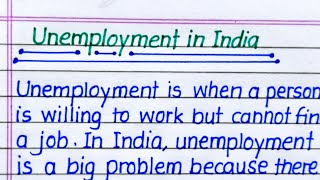 Unemployment in India
Unemployment is when a person
is willing to work but cannot fin
a job. In India, unemployment
is a big problem because there